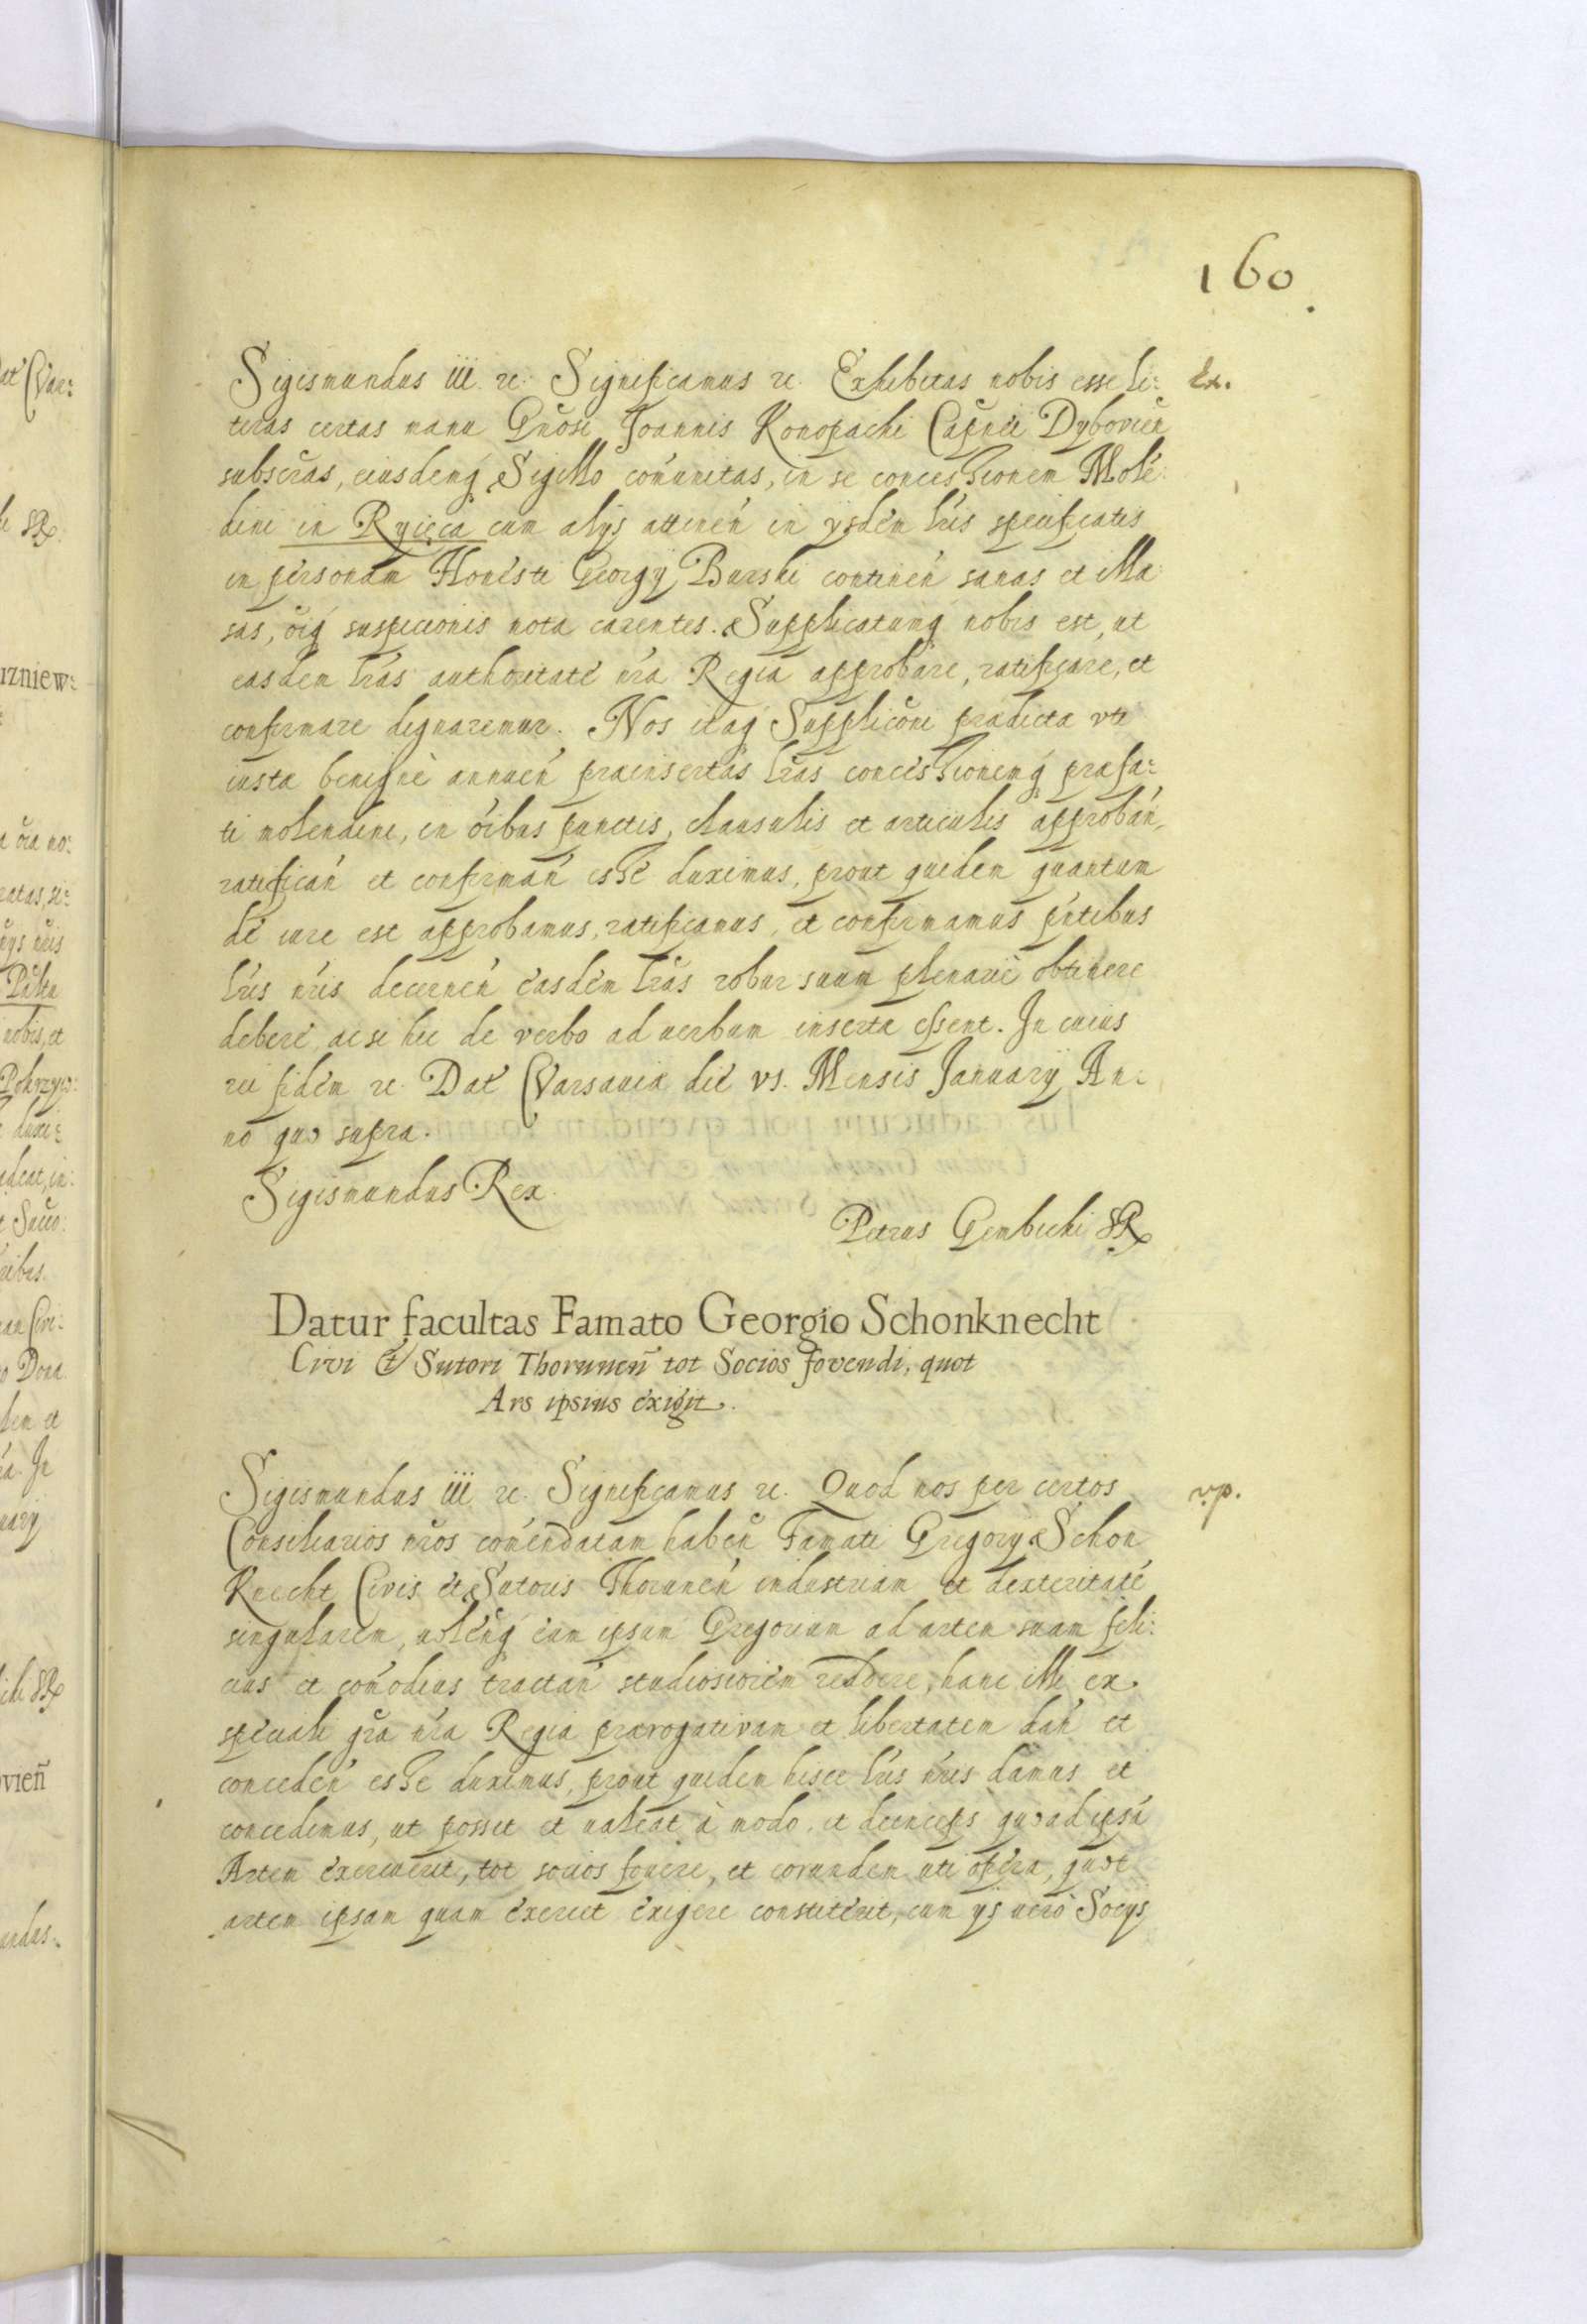 160.
Sigismundus III. etc. Significamus etc. Exhibitas nobis esse li: Ex.
teras certas manu Gñosi Joannis Konopacki Capnei Dybovien̄
subscr̃as, eiusdemq́ Sigillo com̃unitas, in se concessionem Mole:
dini in Ryięca cum alijs attineń in ysdem lr̃is specificatis
in personam Honesti Georgij Burski contineń sanas et illa:
sas, oı̃q́ suspicionis nota carentes. Supplicatumq́ nobis est, ut
easdem lr̃as authoritate nr̃a Regia approbare, ratificare, et
confirmare dignaremur. Nos itaq́ Supplicõni prædicta uti
iusta benignè annueń præinsertas lr̃as concessionemq́ præfa:
ti molendini, in oı̃bus punctis, clausulis et articulis approbań,
ratificań et confirmań esse duximus, prout quidem quantum
de iure est approbamus, ratificamus, et confirmamus pñtibus
lr̃is nr̃is decerneń easdem lr̃as robur suum plenarie obtinere
debere, ac si hic de verbo ad uerbum inserta essent. In cuius
rei fidem etc. Dat́ Varsauiæ die VI. Mensis January An:
no quo supra.
Sigismundus Rex.
Petrus Gembicki SR
Datur facultas Famato Georgio Schonknecht
Civi & Sutori Thorunen̄ tot Socios fovendi, quot
Ars ipsius exigit.
Sigismundus III etc. Significamus etc. Quod nos per certos vp.
Consiliarios nr̃os com̃endatam haben̄ Famati Gregorij Schon
Knecht Civis et Sutoris Thoruneń industriam et dexteritatẽ
singularem, uolenq́ eum ipsum Gregorium ad artem suam feli:
cius et com̃odius tractań studiosiorem reddere, hanc illi ex
speciali gr̃a nr̃a Regia prærogativam et libertatem dań et
concedeń esse duximus, prout quidem hisce lr̃is nr̃is damus et
concedimus, ut possit et ualeat à modo, et deinceps quoad ipsã
Artem exercuerit, tot socios fouere, et eorundem uti opera, quot
artem ipsam quam exercet exigere constiterit, cum ys uerò Socijs